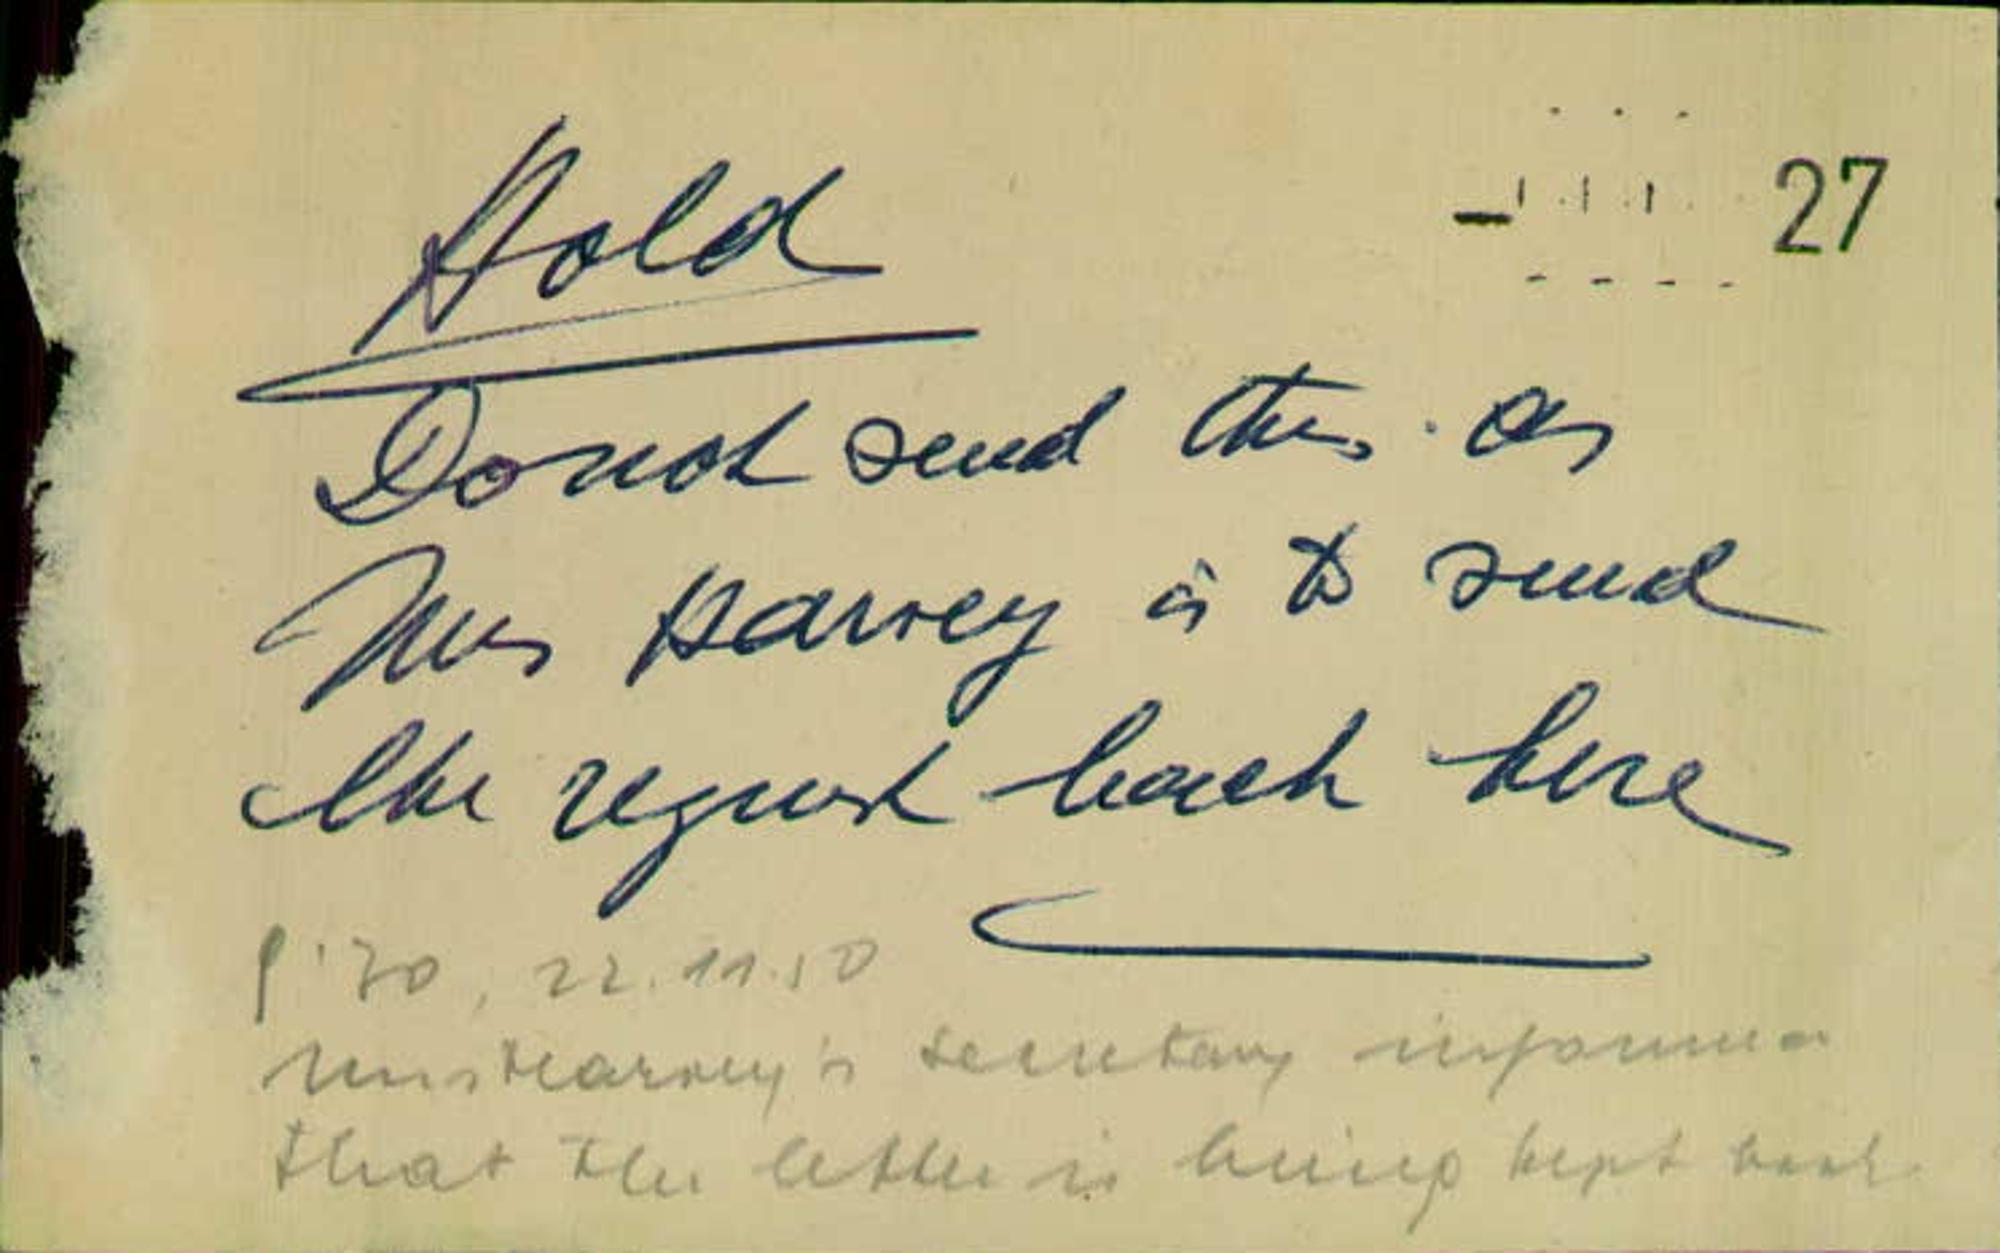 27
Hold
Do not send this as
Miss Harvey is to send
the request back here
9.30, 22.11.50
Miss Harvey's secretary informed
that the letter is being kept back